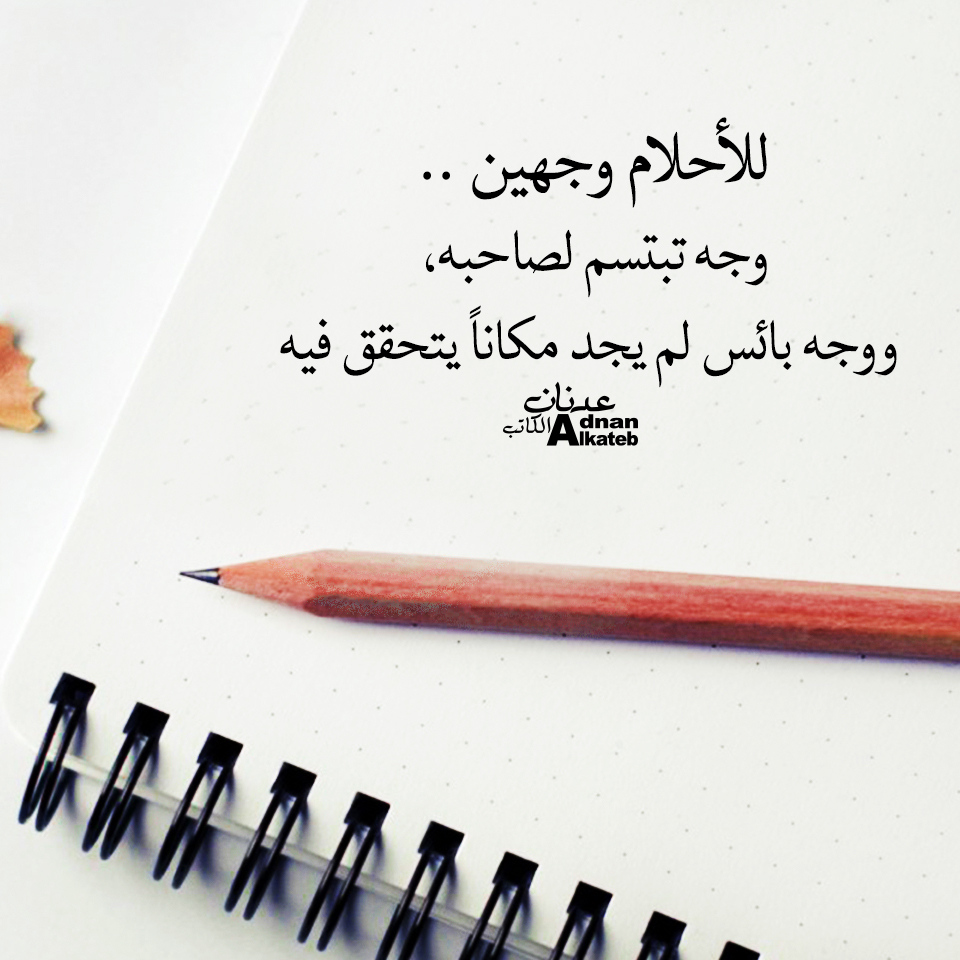 للأحلام وجهين ..
وجه تبتسم لصاحبه،
ووجه بائس لم يجد مكاناً يتحقق فيه
عدنان
الكاتب
Adnan
Alkateb